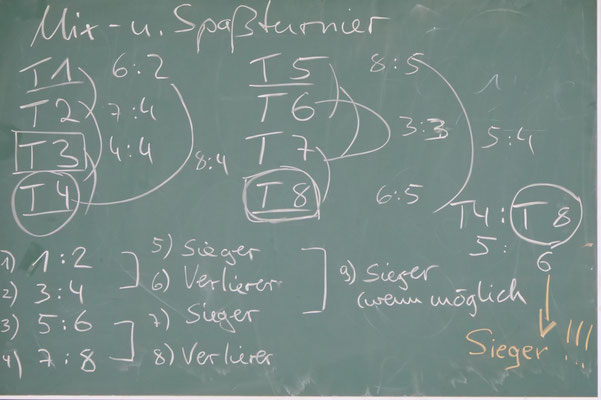 Mix- u. Spaßturnier
T1 6:2 T5 8:5
T2 7:4 T6
T3 4:4 T7 3:3 5:4
T4 8:4 T8 6:5
T4: T8
5: 6
Sieger !!!
1) 1:2
2) 3:4
3) 5:6
4) 7:8
5) Sieger
6) Verlierer
7) Sieger
8) Verlierer
9) Sieger
(wenn möglich